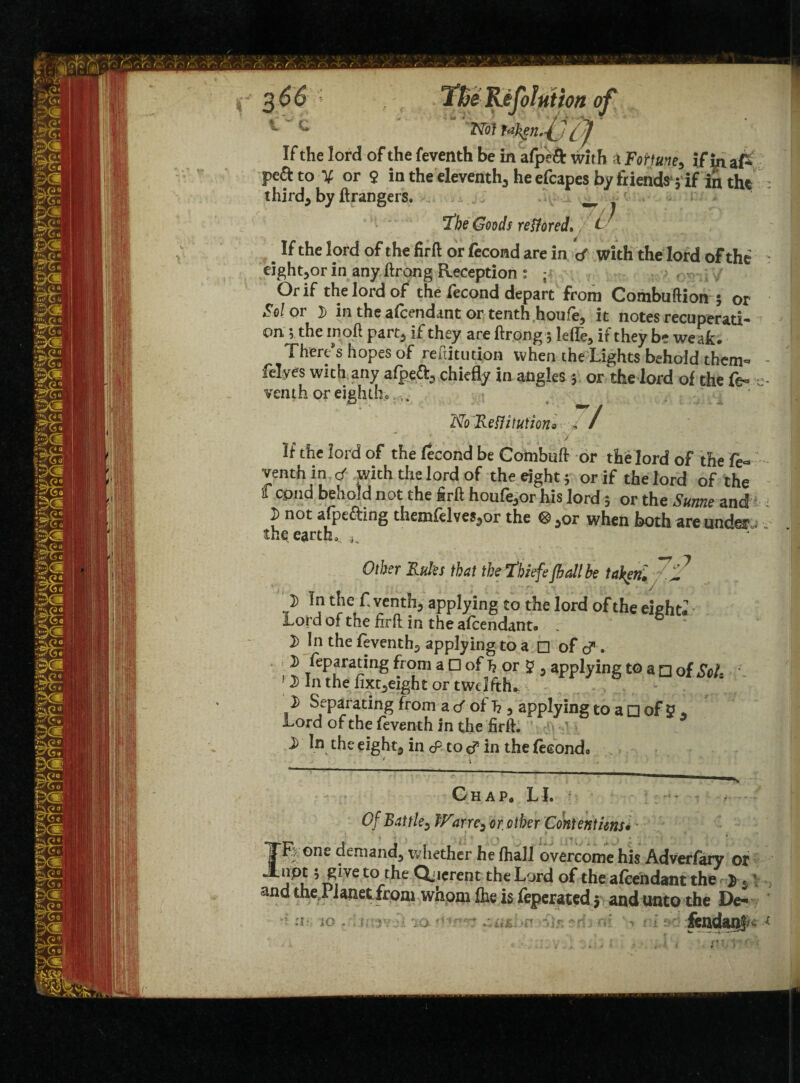 366 The Resolution of
Not taken.
If the lord of the seventh be in aspect with a Fortune, if in as-
pect to ♃ or ♀ in the eleventh, he escapes by friends; if in the
third, by strangers.
The Goods restored.
If the lord of the first or second are in ☌ with the lord of the
eight, or in any strong Reception:
Or if the lord of the second depart from Combustion; or
Sol or ☽ in the ascendant or tenth house, it notes recuperati-
on; the most part, if they are strong; lesse, if they be weak.
There's hopes of restitution when the Lights behold them-
selves with any aspect, chiefly in angles; or the lord of the se-
venth or eighth.
No Restitution.
If the lord of the second be Combust or the lord of the se-
venth in ☌ with the lord of the eight; or if the lord of the
second behold not the first house, or his lord; or the Sunne and
☽ not aspecting themselves, or the ⊗, or when both are under
the earth.
Other Rules that the Thiefe shall be taken.
☽ In the seventh, applying to the lord of the eight:
Lord of the first in the ascendant.
☽ In the seventh, applying to a □ of ♂.
☽ separating from a □ of ♄ or ☿, applying to a □ of Sol.
☽ In the sixt, eight or twelfth.
☽ Separating from a ☌ of ♄, applying to a □ of ☿,
Lord of the seventh in the first.
☽ In the eight, in ☍ to ♂ in the second.
CHAP. LI.
Of Battle, Warre, or other Contentions.
IF one demand, whether he shall overcome his Adversary or
not; give to the Querent the Lord of the ascendant the ☽,
and the Planet from whom she is seperated; and unto the De-
fendant